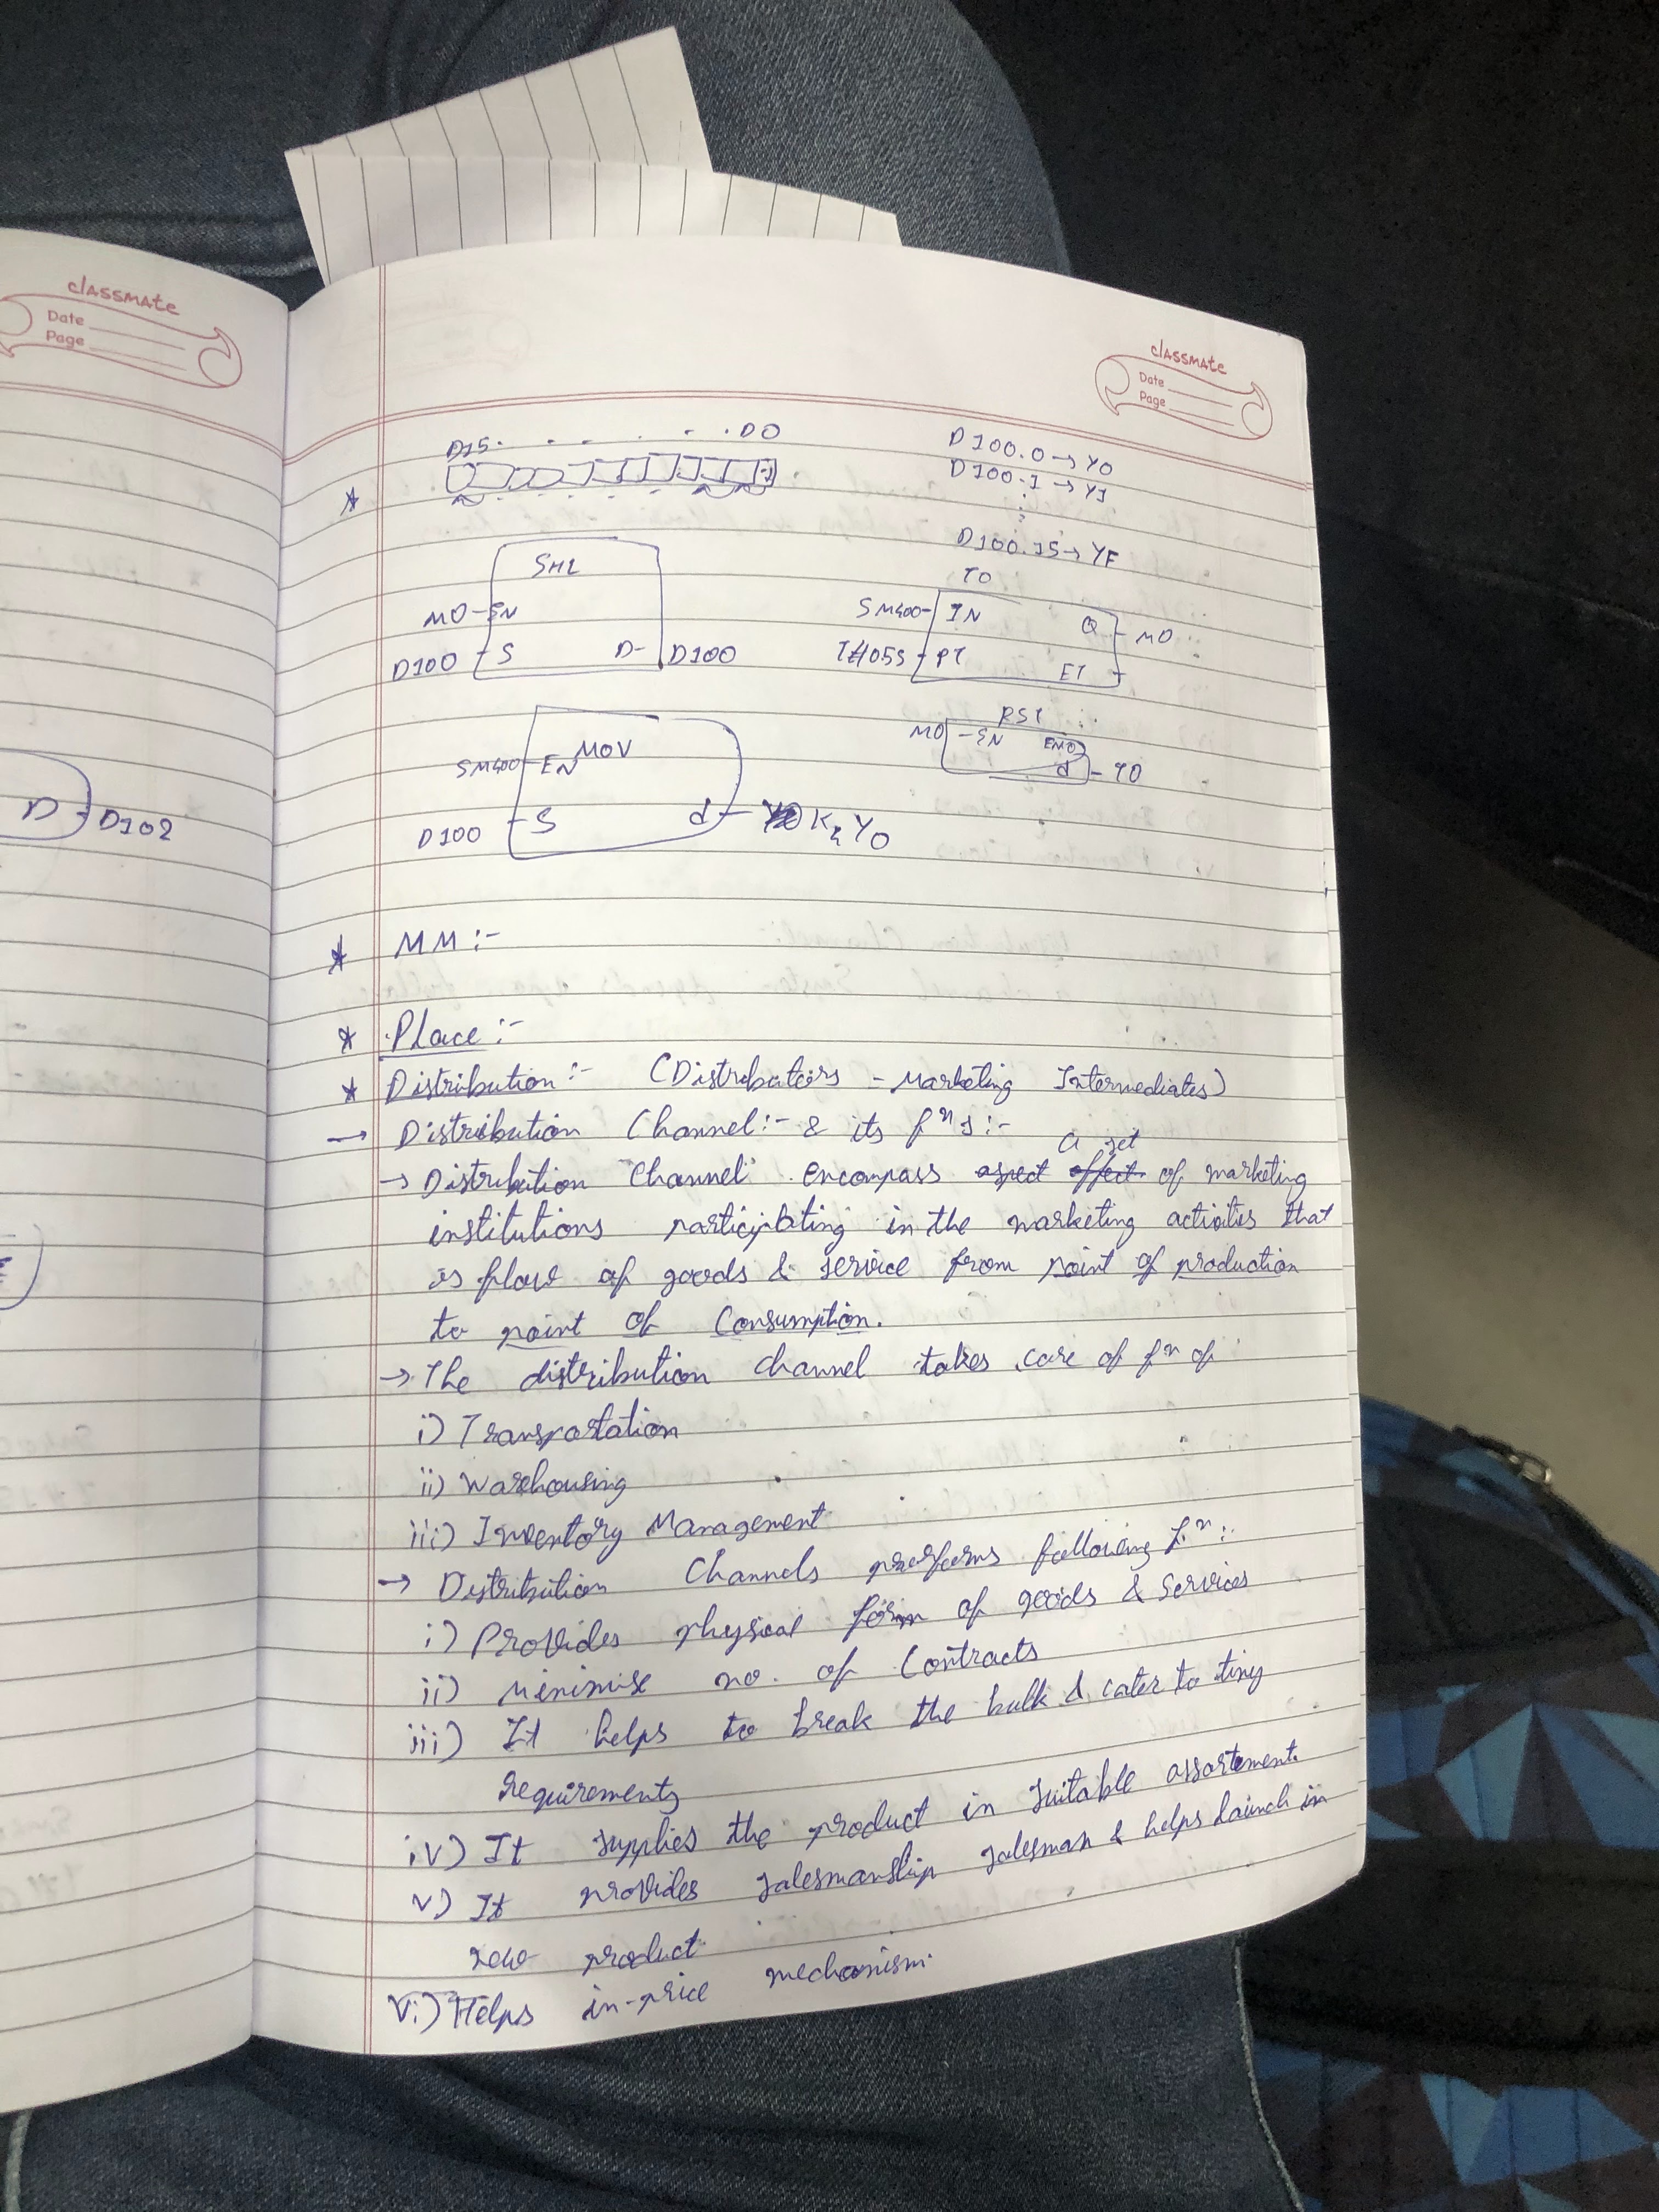 classmate
Date
Page
D102
D
classmate
Date
Page
D15 DO
D100.0→Y0
D100.1→Y1
D100.15→YF
SHL
MO EN
D100 S D D100
TO
SM400 IN Q MO
T#05S PT ET
MOV
SM400 EN
D100 S d K2Y0
RST
MO EN ENO
d TO
* MM:-
* Place:-
* Distribution:- (Distributors - Marketing Intermediates)
→ Distribution Channel:- & its fⁿs:-
a set
→ Distribution Channel encompass aspect effect of marketing
institutions participating in the marketing activities that
is flow of goods & service from point of production
to point of Consumption.
→ The distribution channel takes care of fⁿ of
i) Transportation
ii) Warehousing
iii) Inventory Management
→ Distribution Channels performs following fⁿ:
i) Provides physical form of goods & Services
ii) Minimise no. of Contracts
iii) It helps to break the bulk & cater to tiny
requirements
iv) It supplies the product in suitable assortement
v) It provides salesmanship salesman & helps launch in
new product
vi) Helps in-price mechanism